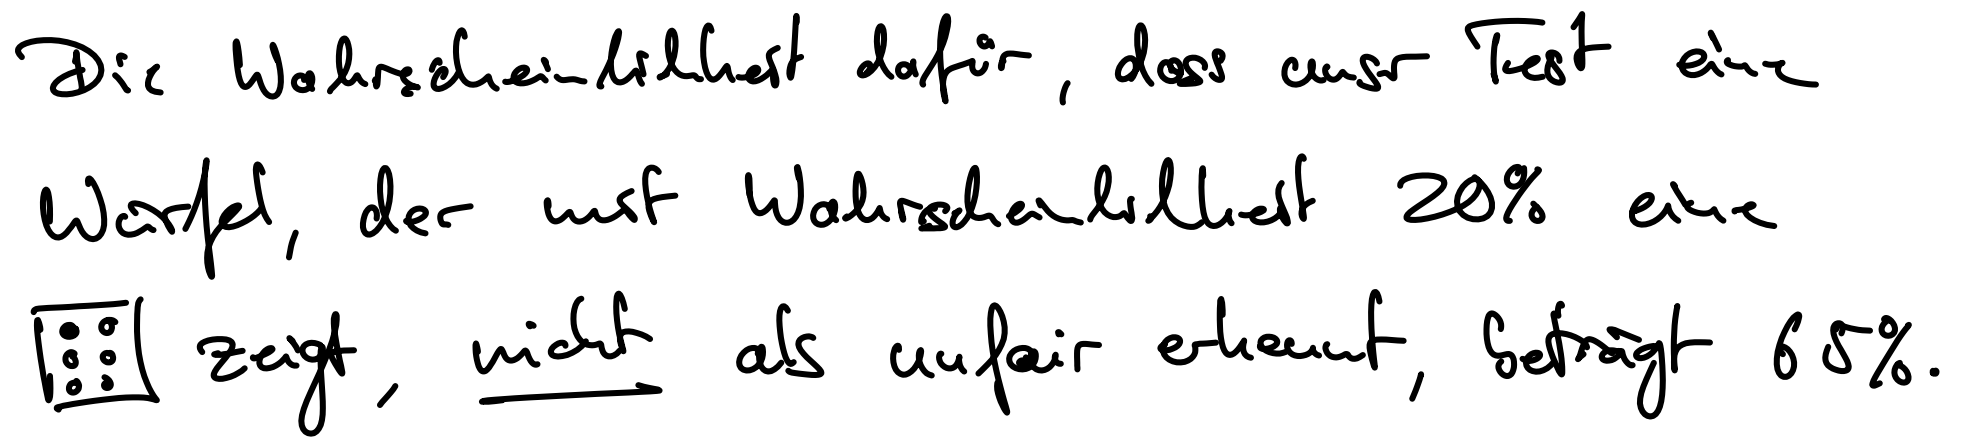 Die Wahrscheinlichkeit dafür, dass unser Test eine
Würfel, der mit Wahrscheinlichkeit 20% eine
⚅ zeigt, nicht als unfair erkennt, beträgt 65%.